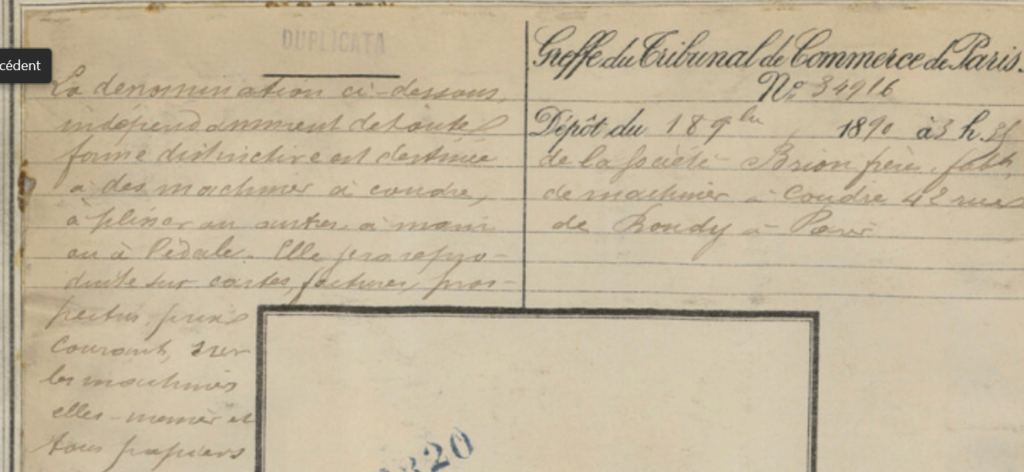 cédent
DUPLICATA
La dénomination ci-dessous,
indépendamment de toute
forme distinctive est destinée
à des machines à coudre,
à plisser ou autres à main
ou à Pédale. Elle sera repro-
duite sur cartes, factures, pros-
pectus, prix
courants, sur
les machines
elles-mêmes et
tous papiers
Greffe du Tribunal de Commerce de Paris.
No. 34916
Dépôt du 18 9bre 1890 à 3 h.
de la Société Brion frères, fabts
de machines à coudre 42 rue
de Bondy à Paris
320